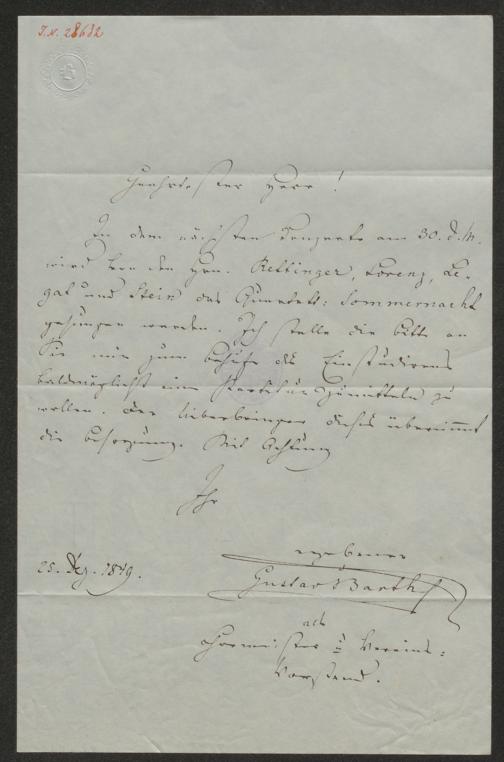 I.N. 28632
Geehrtester Herr!
In dem nächsten Conzerte am 30. d. M.
wird von den Hrn. Rettinger, Lorenz, Le-
gat und Stein das Quartett: Sommernacht
gesungen werden. Ich stelle die bitte an
Sie mir zum behufe des Einstudierens
baldmöglichst eine Partitur zu
wollen. Der Ueberbringer dieses übernimmt
die besorgung. Mit Achtung
Ihr
ergebener
25. Dez. 1849.
Gustav Barth
als
Chormeister u Vereins-
Vorstand.